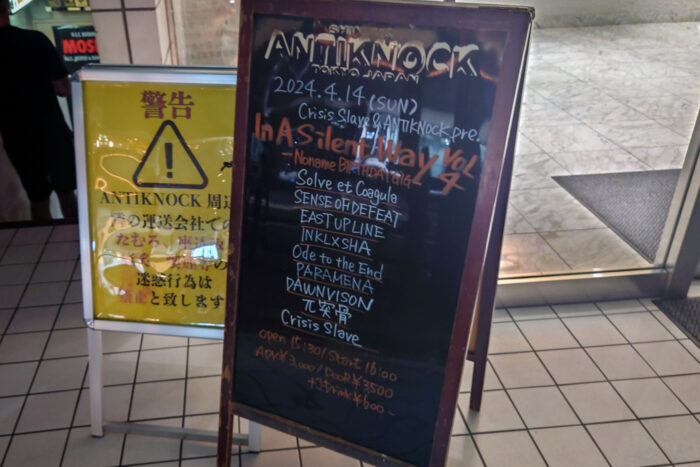 MOS
警告
ANTIKNOCK 周辺
の運送会社での
迷惑行為は
禁止と致します
SHIN
ANTIKNOCK
TOKYO JAPAN
2024.4.14 (SUN)
Crisis Slave & ANTIKNOCK pre.
In A Silent Way Vol 4
-Noname BIRTHDAY GIG-
Solve et Coagula
SENSE OF DEFEAT
EAST UP LINE
INKLXSHA
Ode to the End
PARAMENA
DAWNVISON
兀突骨
Crisis Slave
open 15:30/Start 16:00
ADV ¥3,000/DOOR ¥3500
+1Drink ¥600-